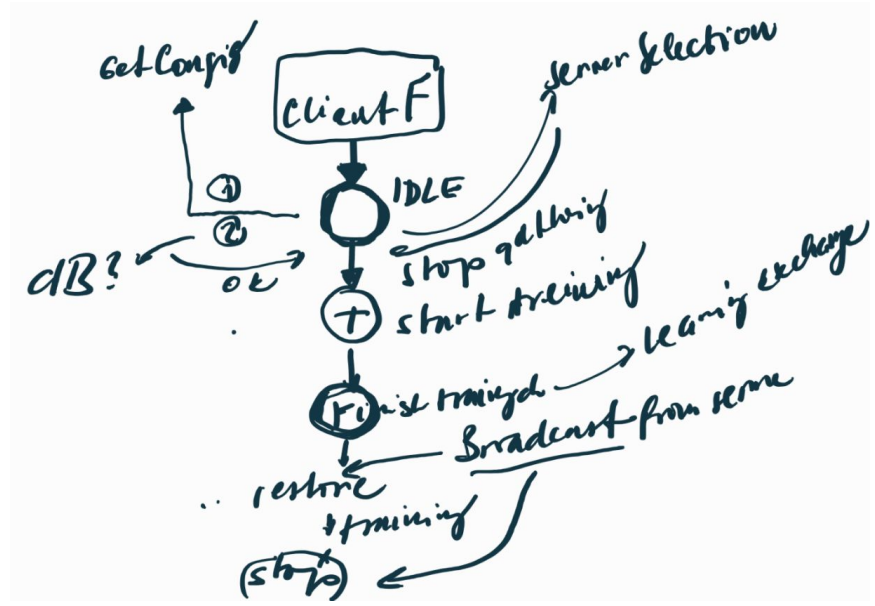 GetConfig
Client F
server selection
IDLE
①
②
dB?
ok
stop gathering
start training
+
Finish training
learning exchange
Broadcast from server
restore
training
(stop)